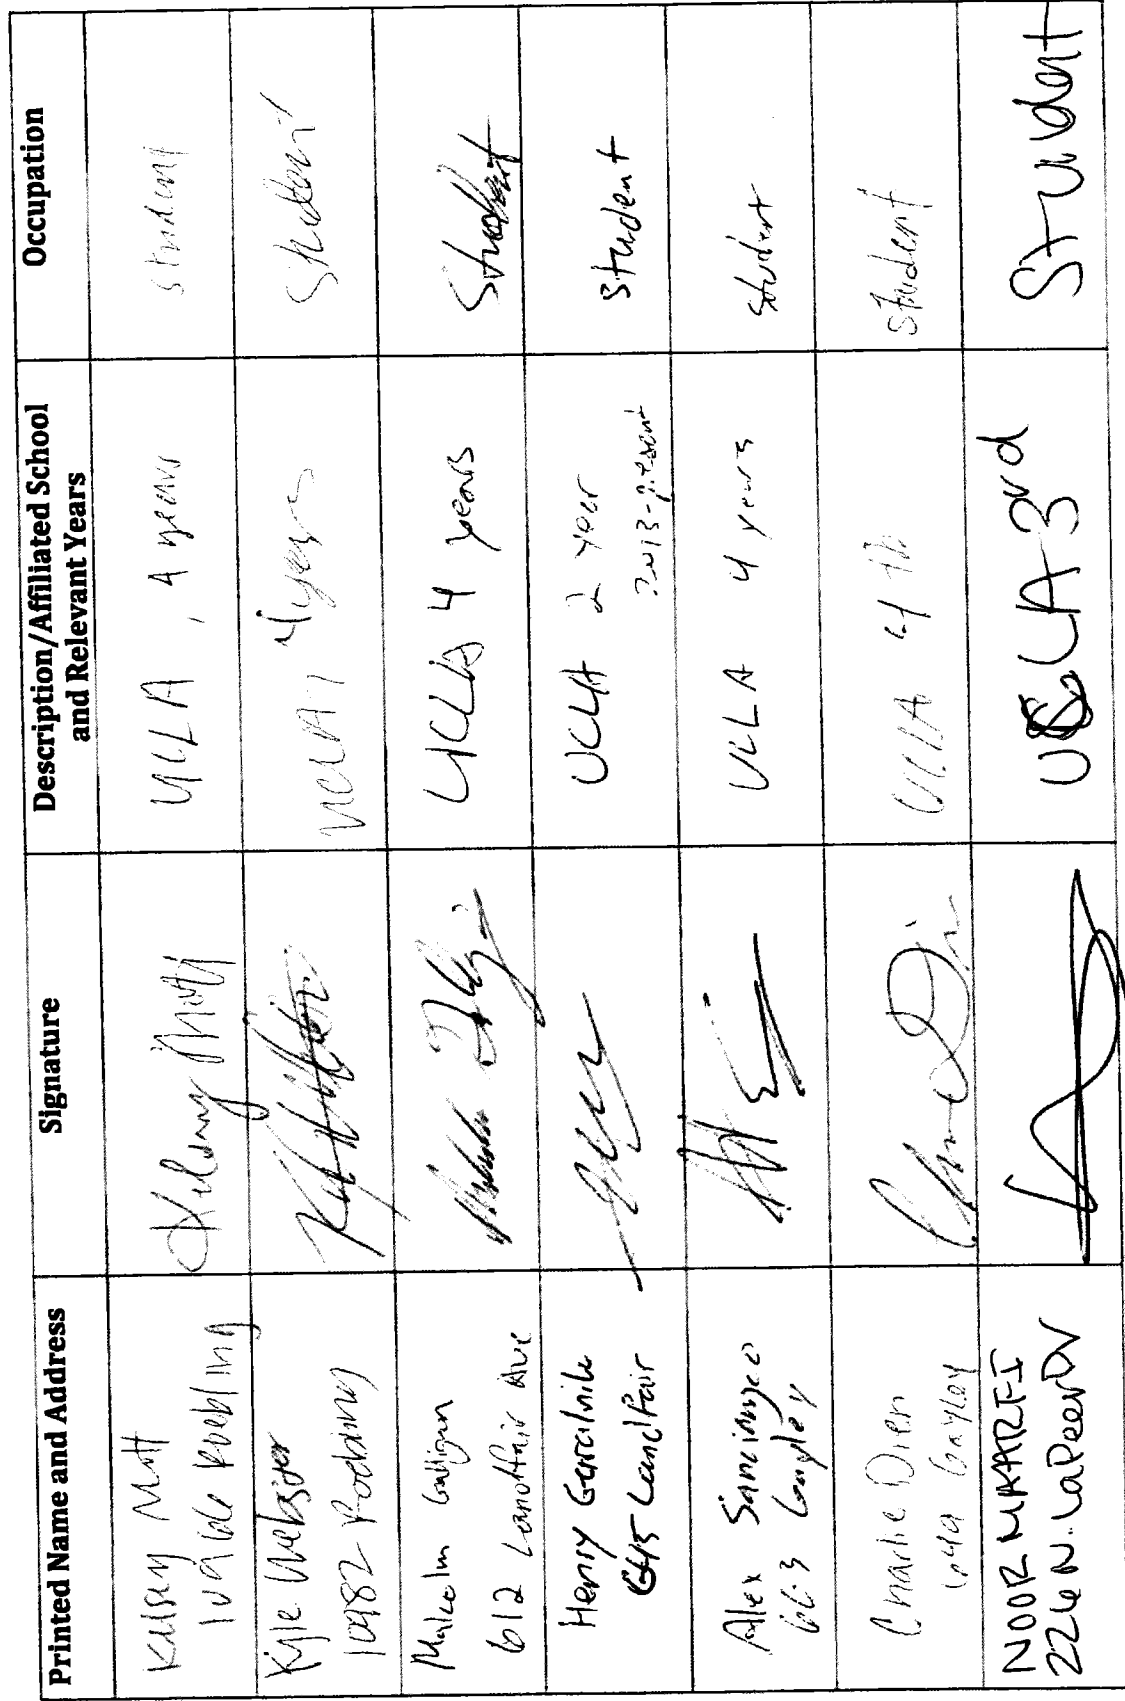 Printed Name and Address
Signature
Description/Affiliated School
and Relevant Years
Occupation
Kelsey Mott
Roebling
Kelsey Mott
UCLA, 4 years
student
Kyle Webster
10982 Roebling
UCLA, 4 years
Student
Malcolm
612 Landfair Ave
UCLA 4 years
Student
Henry
645 Landfair
UCLA 2 year
2013-present
Student
Alex
663 Gayley
UCLA 4 years
student
Charlie Dien
Gayley
UCLA 4th
student
NOOR MAARFI
226 N. LaPeer Dr
UCLA 3rd
Student